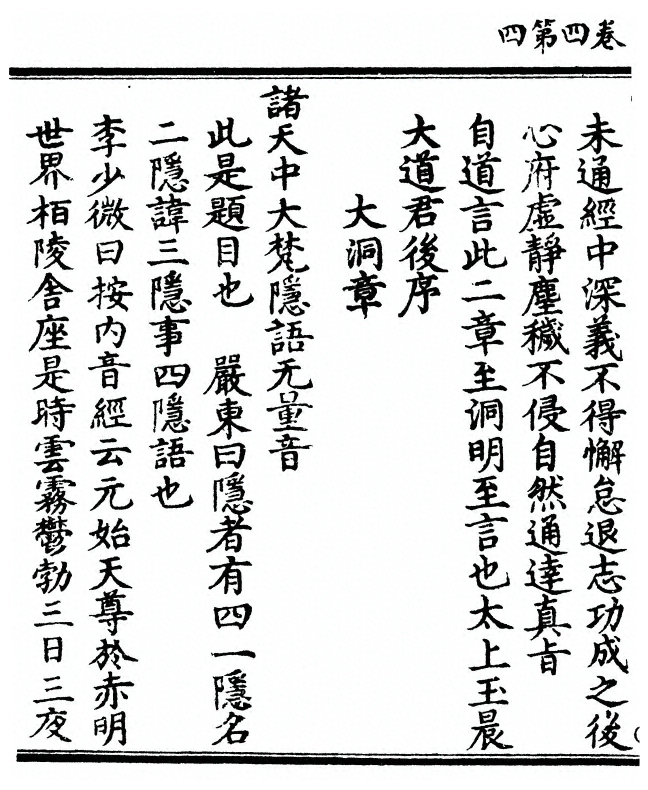 四第四卷
未通經中深義不得懈怠退志功成之後
心府虛靜塵穢不侵自然通達真旨
自道言此二章至洞明至言也太上玉晨
大道君後序
大洞章
諸天中大梵隱語无量音
此是題目也　嚴東曰隱者有四一隱名
二隱諱三隱事四隱語也
李少微曰按內音經云元始天尊於赤明
世界栢陵舍座是時雲霧鬱勃三日三夜